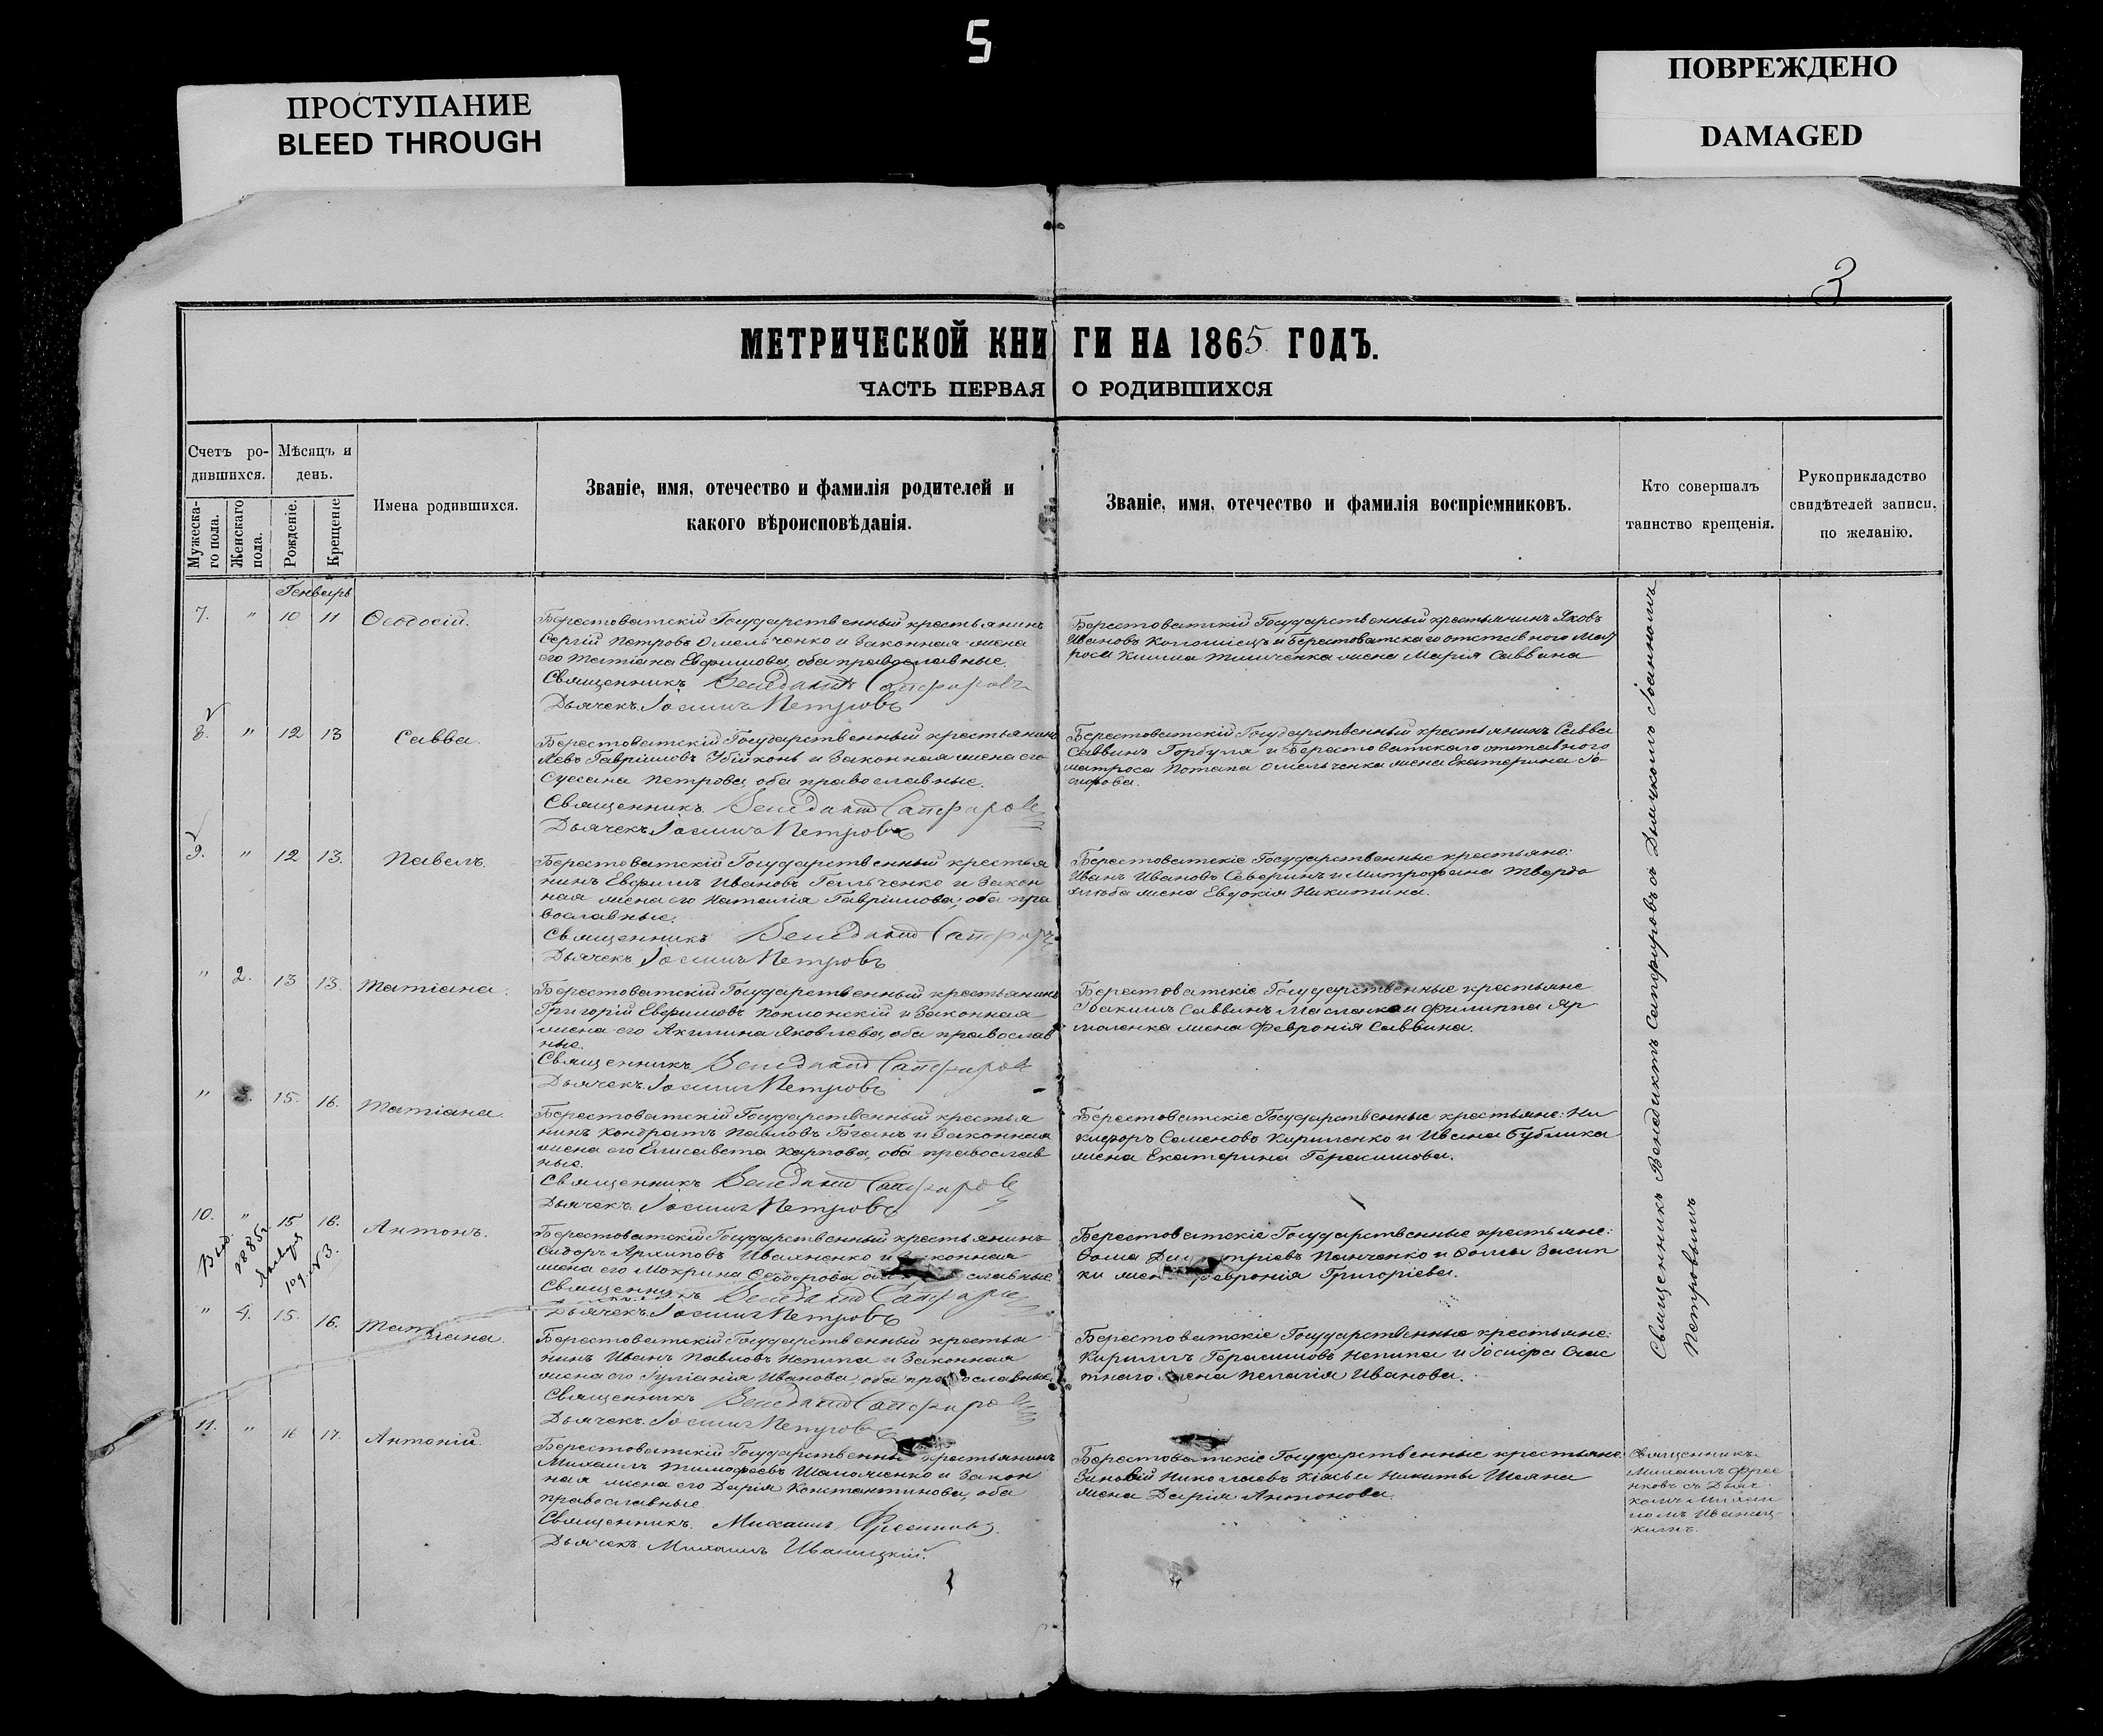 5
ПРОСТУПАНИЕ
BLEED THROUGH
ПОВРЕЖДЕНО
DAMAGED
3
МЕТРИЧЕСКОЙ КНИГИ НА 1865 ГОДЪ.
ЧАСТЬ ПЕРВАЯ О РОДИВШИХСЯ
Счетъ ро-
дившихся.
Мѣсяцъ и
день.
Мужеска-
го пола.
Женскаго
пола.
Рожденіе.
Крещеніе
Имена родившихся.
Званіе, имя, отечество и фамилія родителей и
какого вѣроисповѣданія.
Званіе, имя, отечество и фамилія воспріемниковъ.
Кто совершалъ
таинство крещенія.
Рукоприкладство
свидѣтелей записи,
по желанію.
Генварь
7. " 10 11 Ѳеодосій.
Берестоватскій Государственный крестьянинъ
Сергій Петровъ Омельченко и Законная жена
его Татіана Евфимова, оба православные.
Священникъ Венедиктъ Сапфировъ
Дьячекъ Іоаннъ Петровъ
Берестоватскій Государственный крестьянинъ Яковъ
Ивановъ Коломіецъ и Берестоватскаго отставного мат
роса жена Марія Саввина
8. " 12 13 Савва.
Берестоватскій Государственный крестьянинъ
Левъ Гавріиловъ Убійконь и Законная жена его
Сусанна Петрова, оба православные.
Священникъ Венедиктъ Сапфировъ
Дьячекъ Іоаннъ Петровъ
Берестоватскій Государственный крестьянинъ Савва
Саввинъ Горбуля и Берестоватскаго отставного
матроса Потапа Омельченка жена Екатерина
9. " 12 13. Павелъ.
Берестоватскій Государственный крестья
нинъ Евфимъ Ивановъ и Закон
ная жена его Наталія Гавріилова, оба пра
вославные.
Священникъ Венедиктъ Сапфировъ
Дьячекъ Іоаннъ Петровъ
Берестоватскіе Государственные крестьяне:
Иванъ Ивановъ Северинъ и Митрофана Твердо
хлѣба жена Евдокія Никитина.
" 2. 13 13. Татіана.
Берестоватскій Государственный крестьянинъ
Григорій Евфимовъ Поклонскій и Законная
жена его Акилина Яковлева, оба православ
ные.
Священникъ Венедиктъ Сапфировъ
Дьячекъ Іоаннъ Петровъ
Берестоватскіе Государственные крестьяне
Іоакимъ Саввинъ Масла и Филиппа Яр
маленка жена Февронія Саввина.
" 3. 15. 16. Татіана.
Берестоватскій Государственный крестья
нинъ Кондратъ Павловъ и Законная
жена его Елисавета Карпова, оба православ
ные.
Священникъ Венедиктъ Сапфировъ
Дьячекъ Іоаннъ Петровъ
Берестоватскіе Государственные крестьяне: Ни
кифоръ Семеновъ Кириленко и Ивана Бублика
жена Екатерина Геракимова.
10. " 15 16. Антонъ.
Выд. 1885г. Января 10 д. №3.
Берестоватскій Государственный крестьянинъ
Сидоръ Архиповъ Иваненко и Законная
жена его Мокрина Ѳедорова, славные
Священникъ Венедиктъ Сапфировъ
Дьячекъ Іоаннъ Петровъ
Берестоватскіе Государственные крестьяне:
Ѳома Димитріевъ Панченко и Ѳомы Засип
ки жена Февронія Григоріева.
" 4. 15. 16. Татіана.
Берестоватскій Государственный крестья
нинъ Иванъ Павловъ Непипа и Законная
жена его Іуліанія Иванова, оба православные.
Священникъ Венедиктъ Сапфировъ
Дьячекъ Іоаннъ Петровъ
Берестоватскіе Государственные крестьяне:
Кириллъ Герасимовъ Непипа и Іосифа
жена Пелагія Иванова.
11. " 16 17. Антоній.
Берестоватскій Государственный крестьянинъ
Михаилъ Тимофеевъ Шаполченко и Закон
ная жена его Дарія Константинова, оба
православные
Священникъ Михаилъ
Дьячекъ Михаилъ Иваницкій.
Берестоватскіе Государственные крестьяне:
Зиновій Николаевъ и Никиты
жена Дарія Антонова.
Священникъ Венедиктъ Сапфировъ съ Дьячкомъ Іоанномъ
Петровымъ
Священникъ
Михаилъ
съ Дьяч
комъ Михаи
ломъ Иваниц-
кимъ.